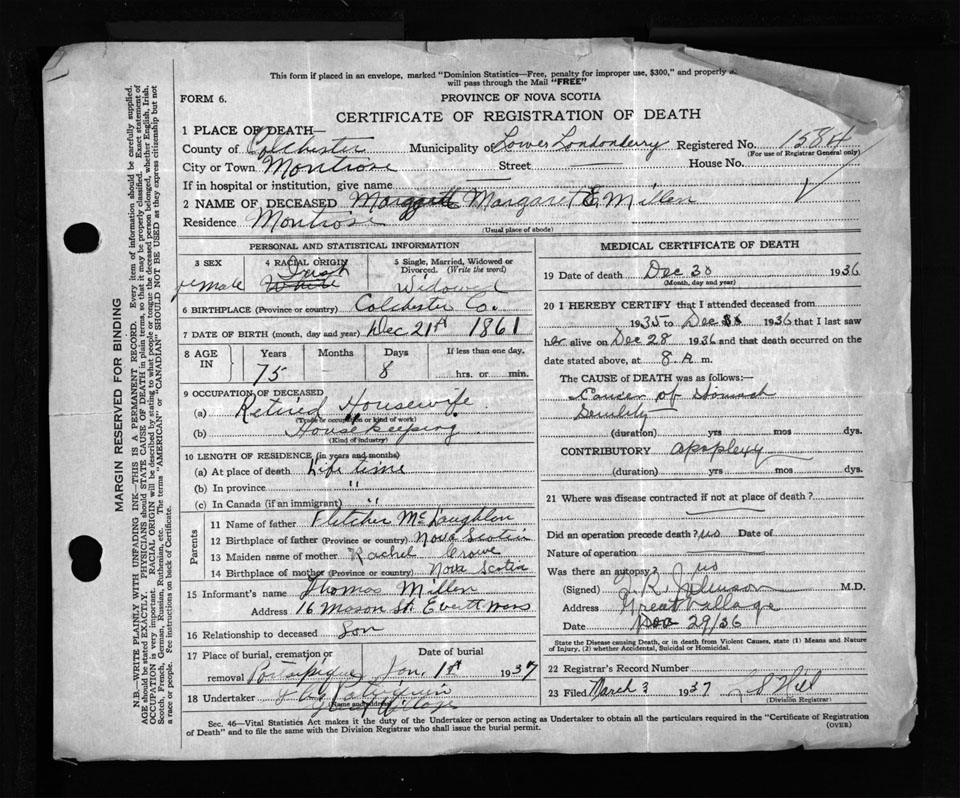 This form if placed in an envelope, marked "Dominion Statistics—Free, penalty for improper use, $300," and properly a
will pass through the Mail "FREE"
FORM 6.
PROVINCE OF NOVA SCOTIA
CERTIFICATE OF REGISTRATION OF DEATH
1 PLACE OF DEATH—
County of Colchester Municipality of Lower Londonderry Registered No. 1584
(For use of Registrar General only)
City or Town Montrose Street House No.
If in hospital or institution, give name
2 NAME OF DECEASED Margaret E. Millen
Residence Montrose
(Usual place of abode)
PERSONAL AND STATISTICAL INFORMATION
3 SEX 4 RACIAL ORIGIN 5 Single, Married, Widowed or Divorced. (Write the word)
Female White Irish Widowed
6 BIRTHPLACE (Province or country) Colchester Co.
7 DATE OF BIRTH (month, day and year) Dec 21st 1861
8 AGE IN Years Months Days If less than one day,
75 8 hrs. or min.
9 OCCUPATION OF DECEASED
(a) Retired Housewife
(Trade or occupation or kind of work)
(b) Housekeeping
(Kind of industry)
10 LENGTH OF RESIDENCE (in years and months)
(a) At place of death Life time
(b) In province "
(c) In Canada (if an immigrant) "
Parents
11 Name of father Fletcher McLaughlon
12 Birthplace of father (Province or country) Nova Scotia
13 Maiden name of mother Rachel Crowe
14 Birthplace of mother (Province or country) Nova Scotia
15 Informant's name Thomas Millen
Address 16 Mason St. Everett Mass
16 Relationship to deceased Son
17 Place of burial, cremation or removal Date of burial
Portaupique Jan. 1st 1937
18 Undertaker
(Name and address)
Great Village
MEDICAL CERTIFICATE OF DEATH
19 Date of death Dec 30 1936
(Month, day and year)
20 I HEREBY CERTIFY that I attended deceased from
1935 to Dec 1936 that I last saw
her alive on Dec 28 1936 and that death occurred on the
date stated above, at 8 A. m.
The CAUSE OF DEATH was as follows:—
Cancer of Stomach
Senility
(duration) yrs mos dys.
CONTRIBUTORY apoplexy
(duration) yrs mos dys.
21 Where was disease contracted if not at place of death?
Did an operation precede death? no Date of
Nature of operation
Was there an autopsy? no
(Signed) R. Johnson M.D.
Address Great Village
Date 29/36
State the Disease causing Death, or in death from Violent Causes, state (1) Means and Nature
of Injury, (2) whether Accidental, Suicidal or Homicidal.
22 Registrar's Record Number
23 Filed March 3 1937
(Division Registrar)
Sec. 46—Vital Statistics Act makes it the duty of the Undertaker or person acting as Undertaker to obtain all the particulars required in the "Certificate of Registration
of Death" and to file the same with the Division Registrar who shall issue the burial permit.
(OVER)
MARGIN RESERVED FOR BINDING
N.B.—WRITE PLAINLY WITH UNFADING INK—THIS IS A PERMANENT RECORD. Every item of information should be carefully supplied.
AGE should be stated EXACTLY. PHYSICIANS should STATE CAUSE OF DEATH in plain terms, so that it may be properly classified. Exact statement of
OCCUPATION is very important. RACIAL ORIGIN will be described by stating to what people or tongue the deceased person belonged, whether English, Irish,
Scotch, French, German, Russian, Ruthenian, etc. The terms "AMERICAN" or "CANADIAN" SHOULD NOT BE USED as they express citizenship but not
a race or people. See instructions on back of Certificate.